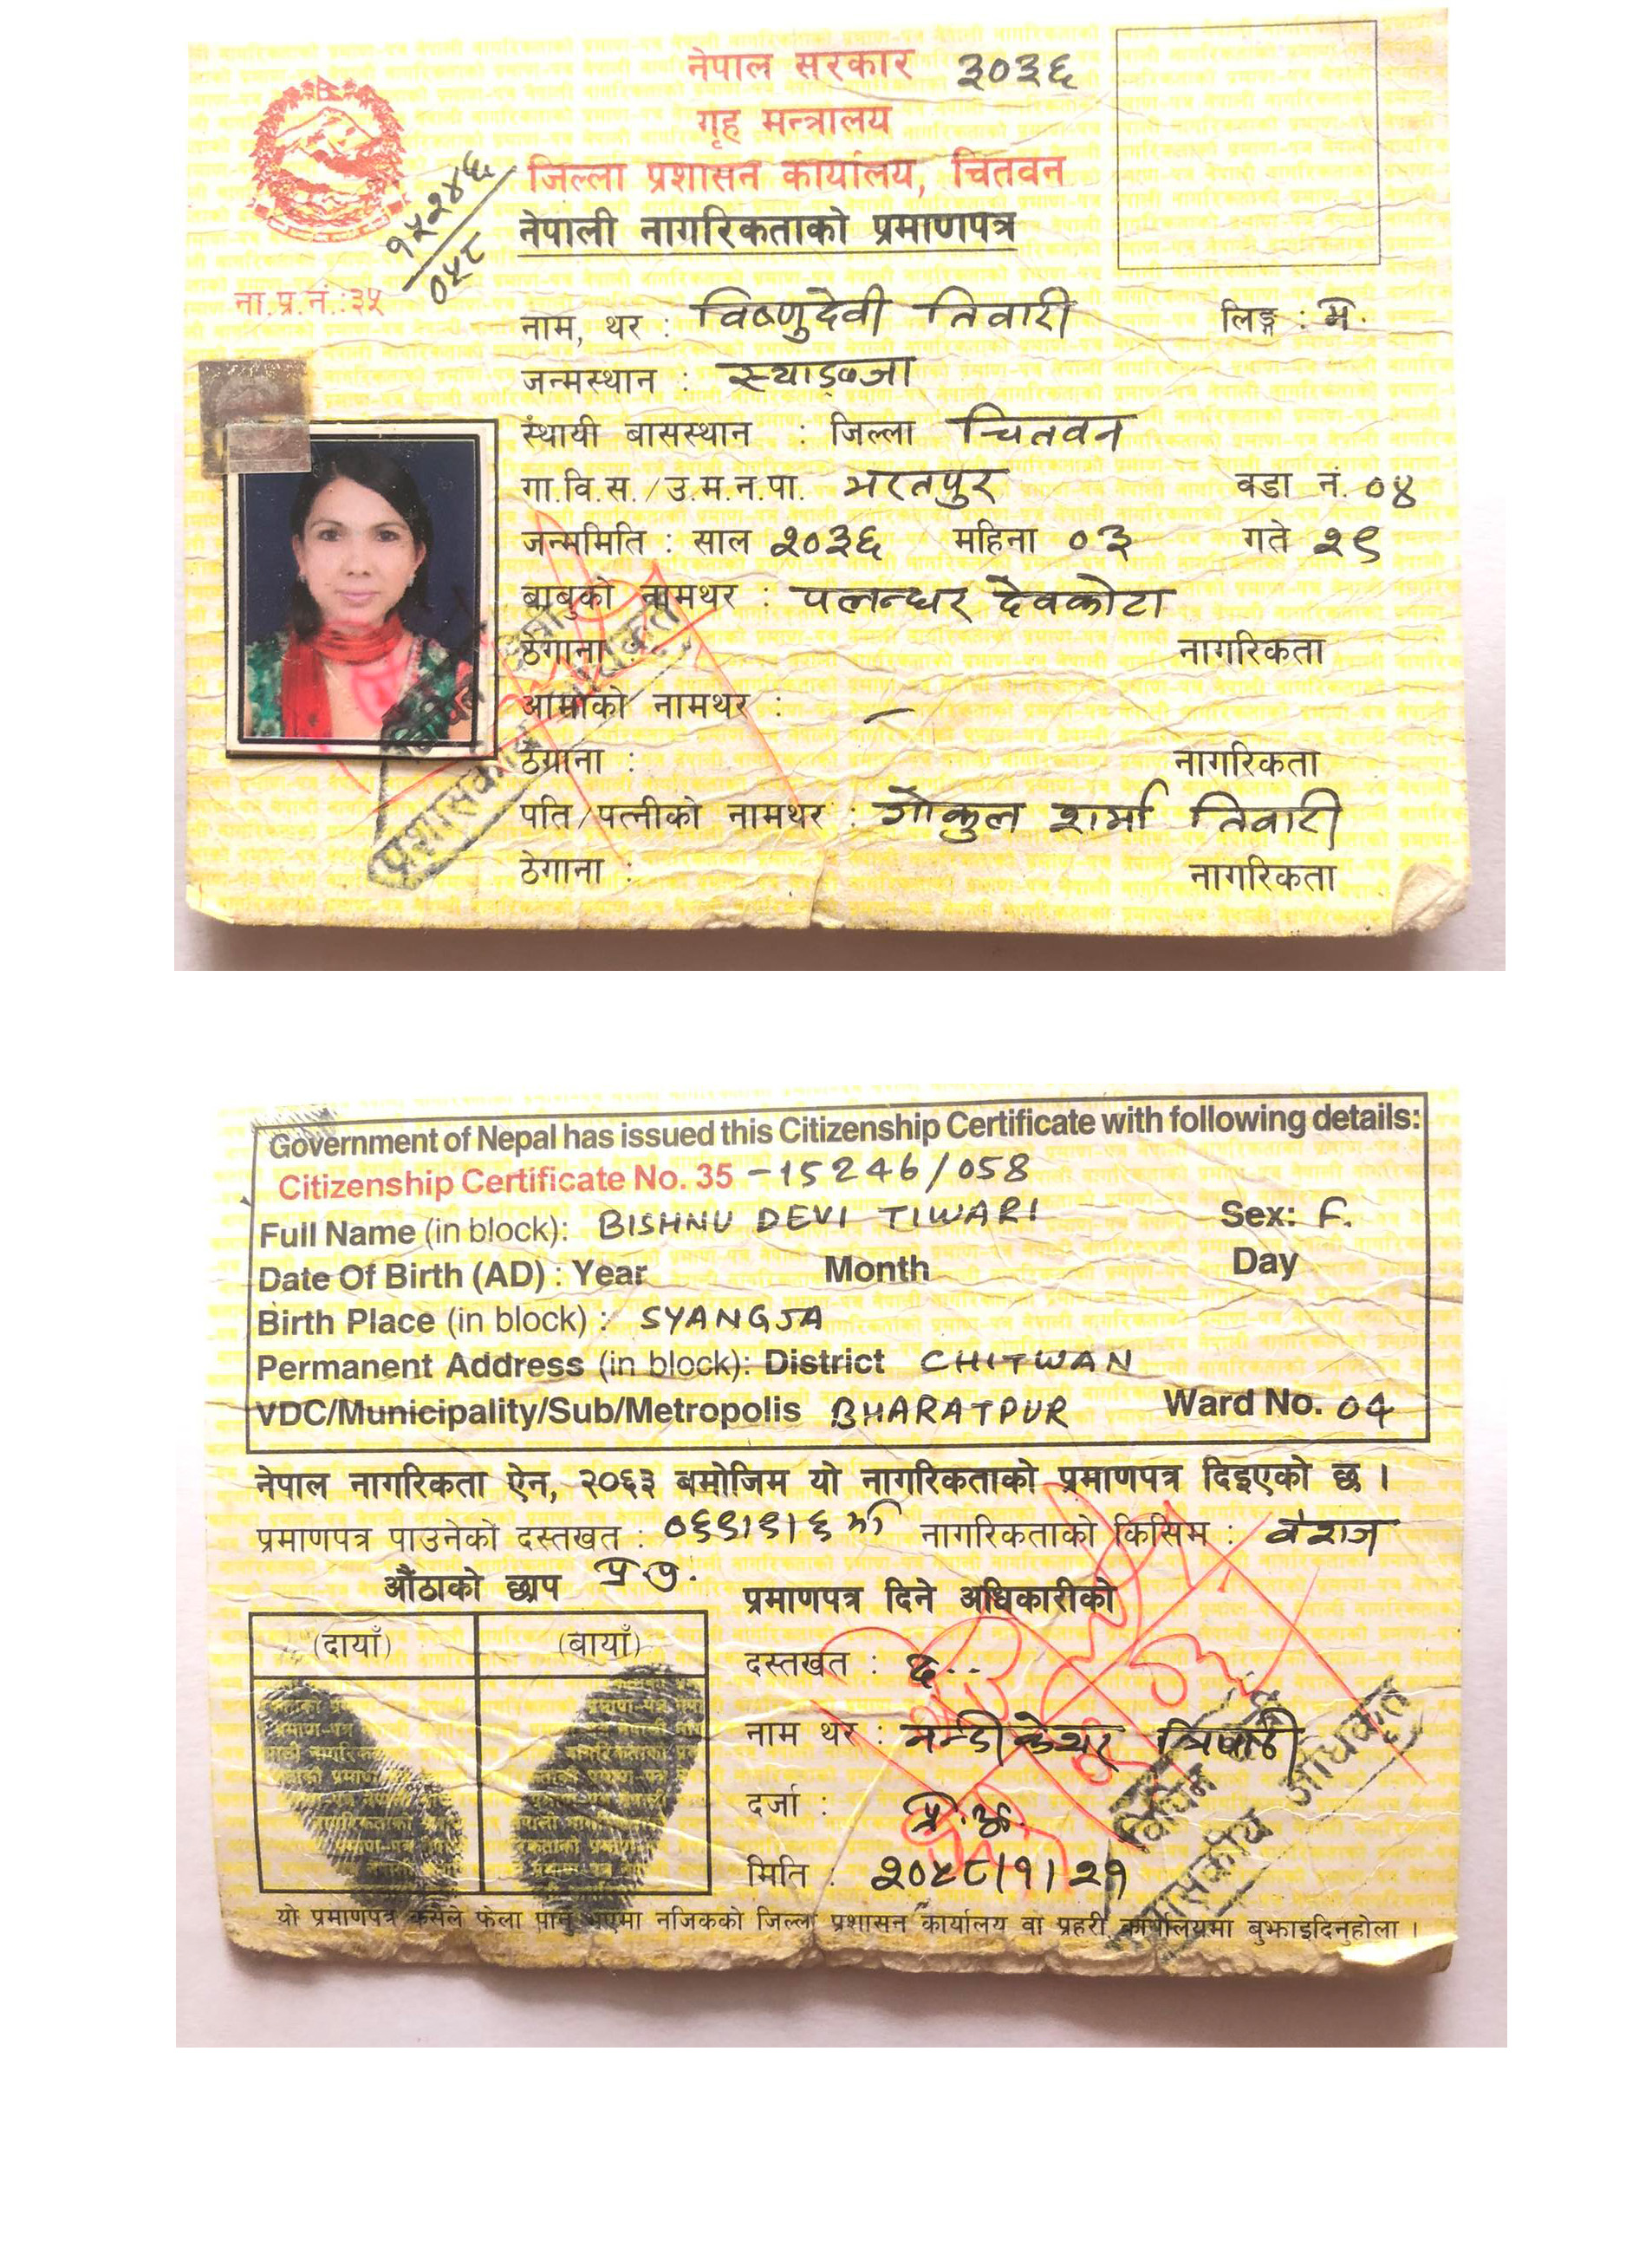 नेपाल सरकार ३०३६
गृह मन्त्रालय
जिल्ला प्रशासन कार्यालय, चितवन
नेपाली नागरिकताको प्रमाणपत्र
ना.प्र.नं.:३५ १५२४६/०५८
नाम, थर : विष्णुदेवी तिवारी लिङ्ग : म.
जन्मस्थान : स्याङ्जा
स्थायी बासस्थान : जिल्ला चितवन
गा.वि.स./उ.म.न.पा. भरतपुर वडा नं. ०४
जन्ममिति : साल २०३६ महिना ०३ गते २९
बाबुको नामथर : देवकोटा
ठेगाना : नागरिकता
आमाको नामथर : –
ठेगाना : नागरिकता
पति/पत्नीको नामथर : गोकुल शर्मा तिवारी
ठेगाना : नागरिकता
Government of Nepal has issued this Citizenship Certificate with following details:
Citizenship Certificate No. 35 -15246/058
Full Name (in block): BISHNU DEVI TIWARI Sex: F.
Date Of Birth (AD) : Year Month Day
Birth Place (in block) : SYANGJA
Permanent Address (in block): District CHITWAN
VDC/Municipality/Sub/Metropolis BHARATPUR Ward No. 04
नेपाल नागरिकता ऐन, २०६३ बमोजिम यो नागरिकताको प्रमाणपत्र दिइएको छ ।
प्रमाणपत्र पाउनेको दस्तखत : ०६९।९।६ नागरिकताको किसिम : वंशज
औंठाको छाप
प्रमाणपत्र दिने अधिकारीको
(दायाँ) (बायाँ)
दस्तखत : द..
नाम थर :
दर्जा : प्र.अ.
मिति : २०५८।१।२१
यो प्रमाणपत्र कसैले फेला पारेमा नजिकको जिल्ला प्रशासन कार्यालय वा प्रहरी कार्यालयमा बुझाइदिनुहोला ।